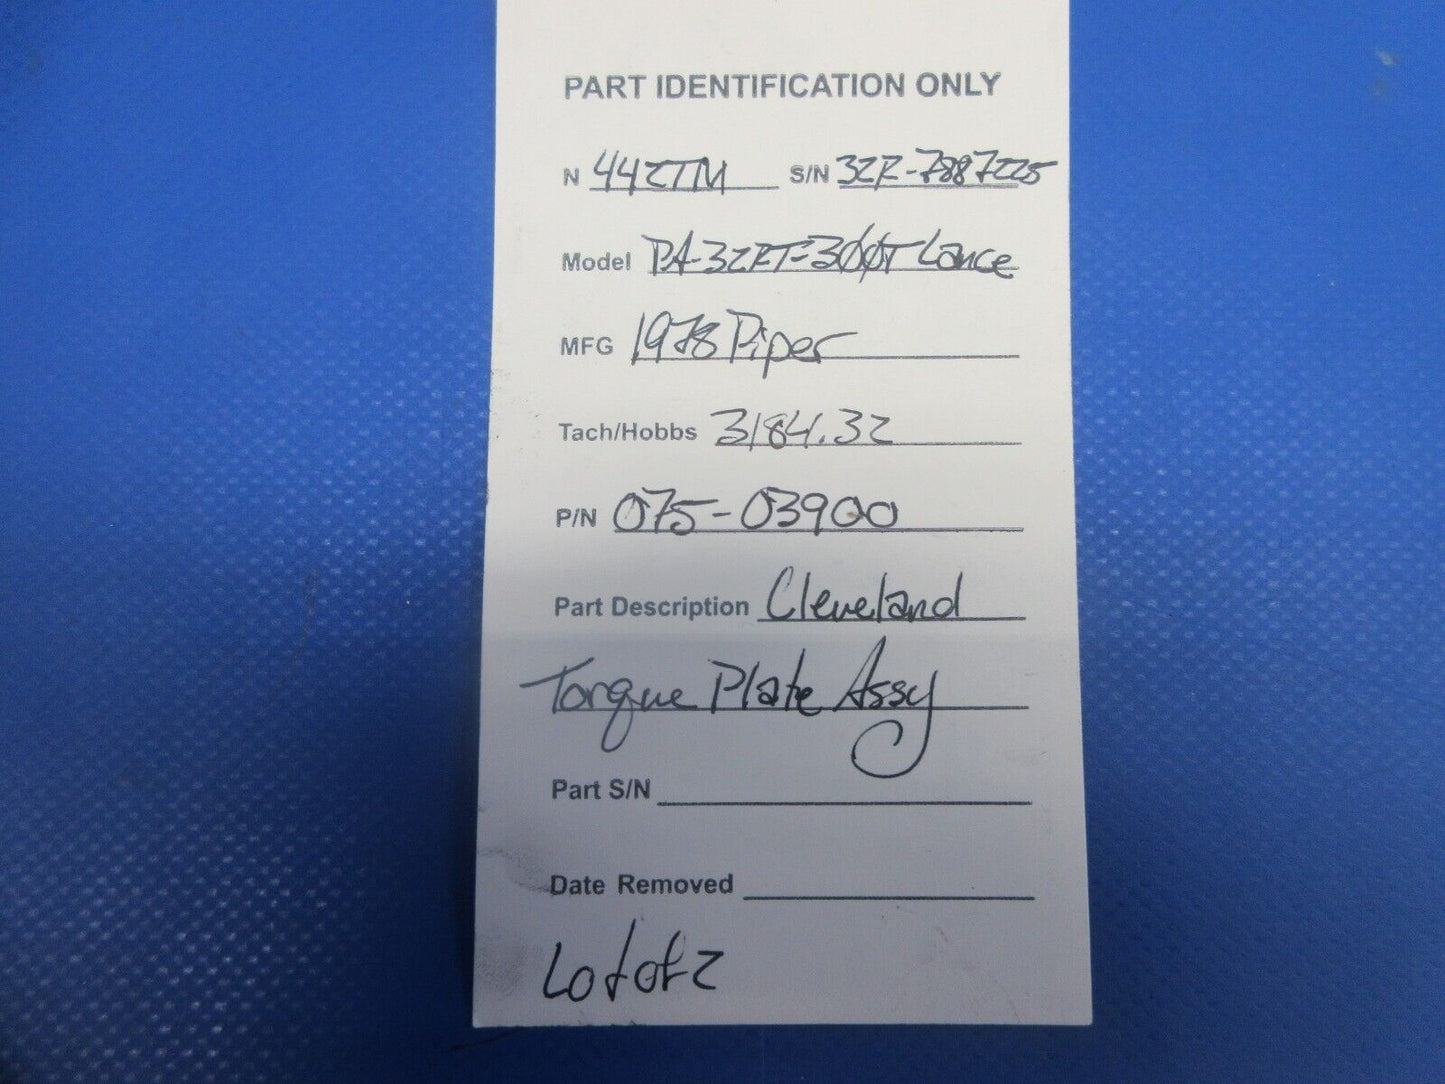 PART IDENTIFICATION ONLY
N 442TM S/N 32R-7887225
Model PA-32RT-300T Lance
MFG 1978 Piper
Tach/Hobbs 3184.32
P/N 075-03900
Part Description Cleveland
Torque Plate Assy
Part S/N
Date Removed
Lot of 2